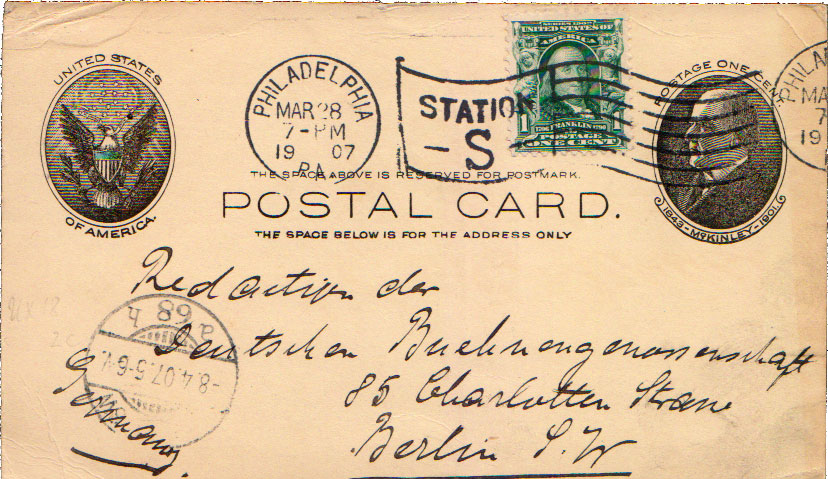 UNITED STATES
OF AMERICA.
PHILADELPHIA
MAR 28
7-PM
19 07
PA.
STATION
- S
SERIES 1902
UNITED STATES OF
AMERICA
FRANKLIN
ONE CENT
POSTAGE ONE CENT
1843-McKINLEY-1901
PHILA
MA
7
19
THE SPACE ABOVE IS RESERVED FOR POSTMARK.
POSTAL CARD.
THE SPACE BELOW IS FOR THE ADDRESS ONLY
Redaction der
Deutschen Buehnengenossenschaft
85 Charlotten Strasse
Berlin S.W
Germany.
a 68 h
-8.4.07.5-6V.